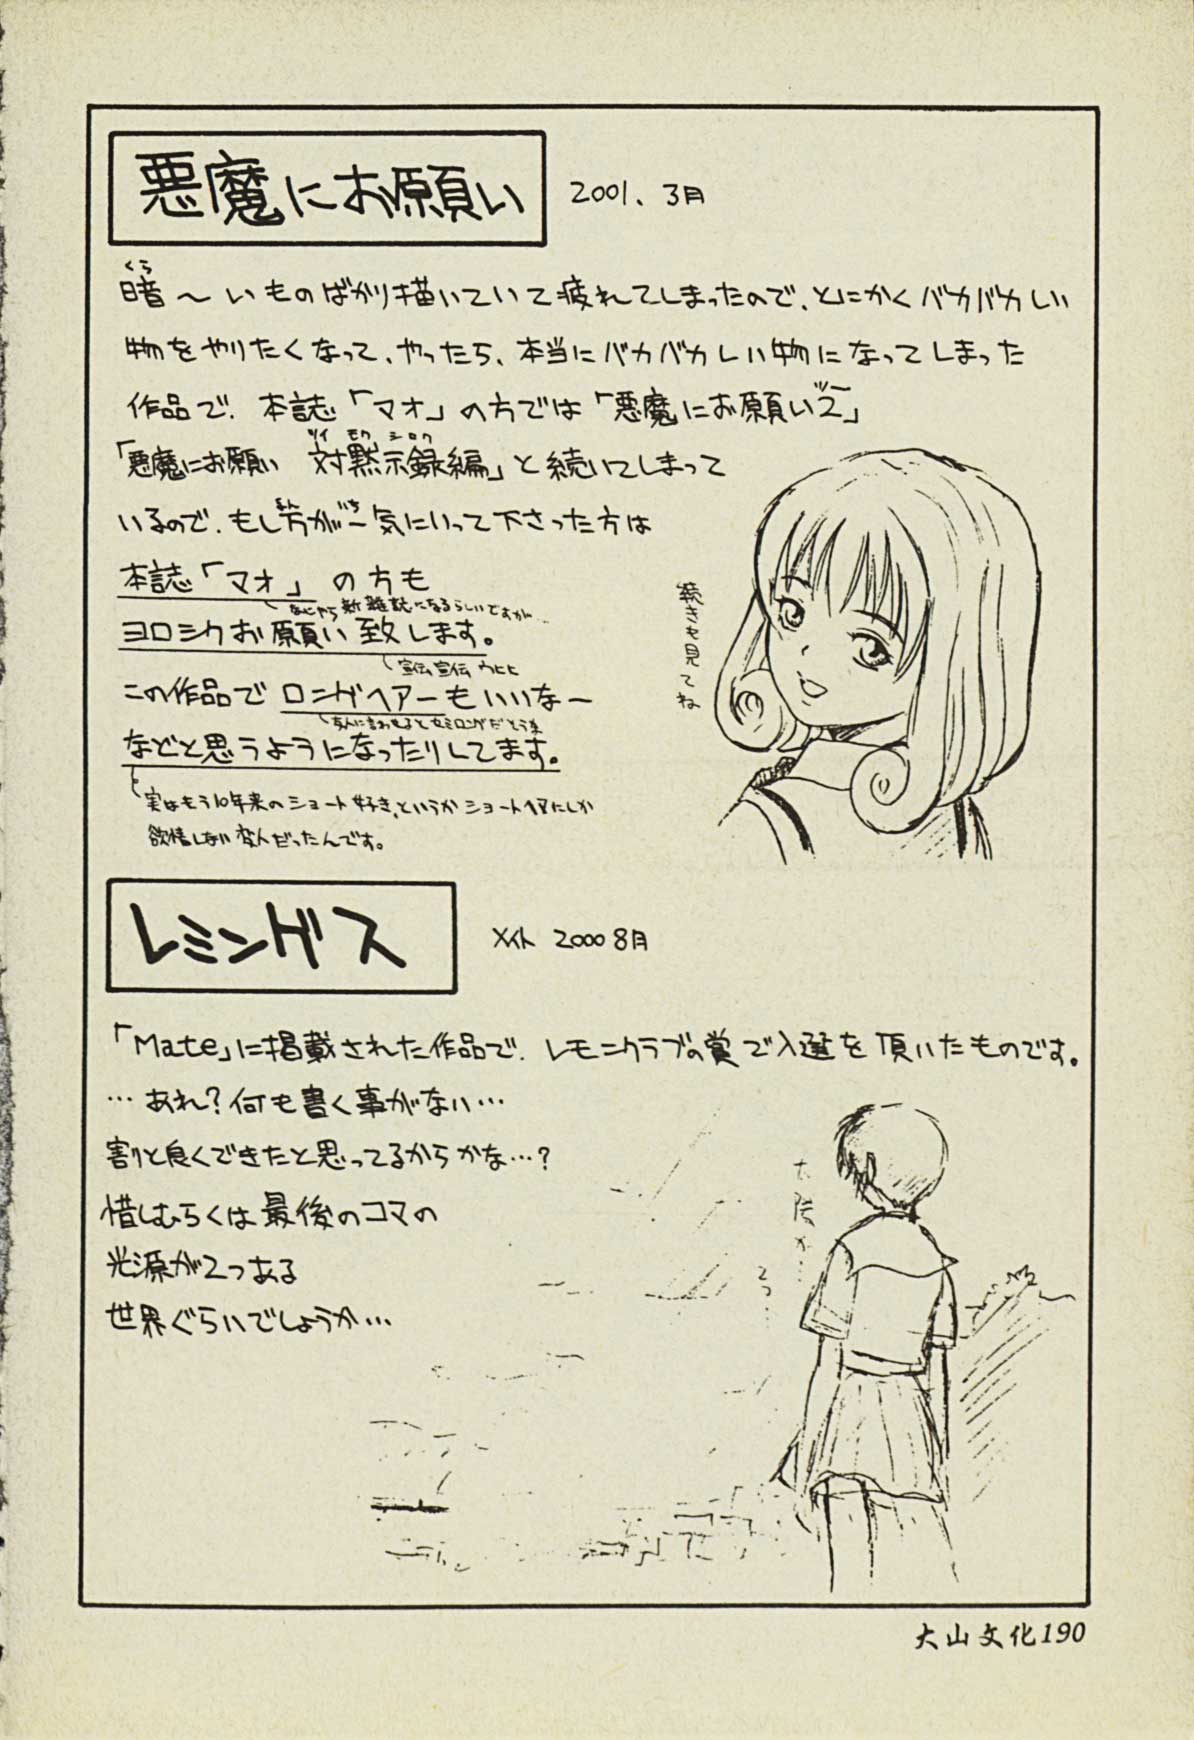 悪魔にお願い 2001、3月
くら
暗〜いものばかり描いていて疲れてしまったので、とにかくバカバカしい
物をやりたくなって、やったら、本当にバカバカしい物になってしまった
作品で、本誌「マオ」の方では「悪魔にお願い2」
ツー
「悪魔にお願い 対黙示録編」と続いてしまって
ツイ モク シロク
いるので、もし万が一気にいって下さった方は
まん いち
本誌「マオ」の方も
なにやら新雑誌になるらしいですが…
ヨロシクお願い致します。
宣伝宣伝 ウヒヒ
この作品でロングヘアーもいいなー
友人に言わせるとセミロングだとうな
などと思うようになったりしてます。
実はもう10年来のショート好き、というかショートヘアにしか
欲情しない変人だったんです。
続きも見てね
レミングス メイト 2000 8月
「Mate」に掲載された作品で、レモンクラブの賞で入選を頂いたものです。
…あれ?何も書く事がない…
割と良くできたと思ってるからかな…?
惜しむらくは最後のコマの
光源が2つある
世界ぐらいでしょうか…
太陽が…
2つ…
大山文化190